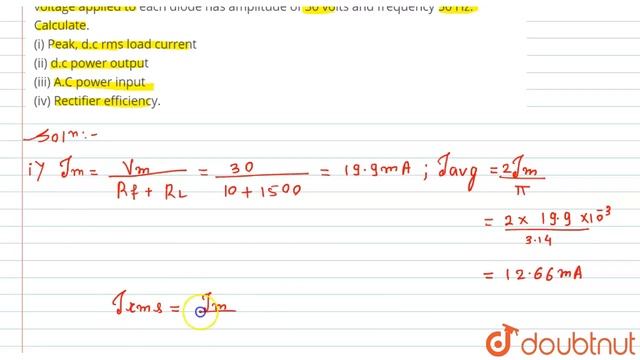 voltage applied to each diode has amplitude of 30 volts and frequency 50 Hz.
Calculate.
(i) Peak, d.c rms load current
(ii) d.c power output
(iii) A.C power input
(iv) Rectifier efficiency.
Soln:-
i) Im = Vm / (Rf + RL) = 30 / (10 + 1500) = 19.9mA ; Iavg = 2Im / π
= 2 × 19.9 × 10⁻³ / 3.14
= 12.66mA
Irms = Im
doubtnut